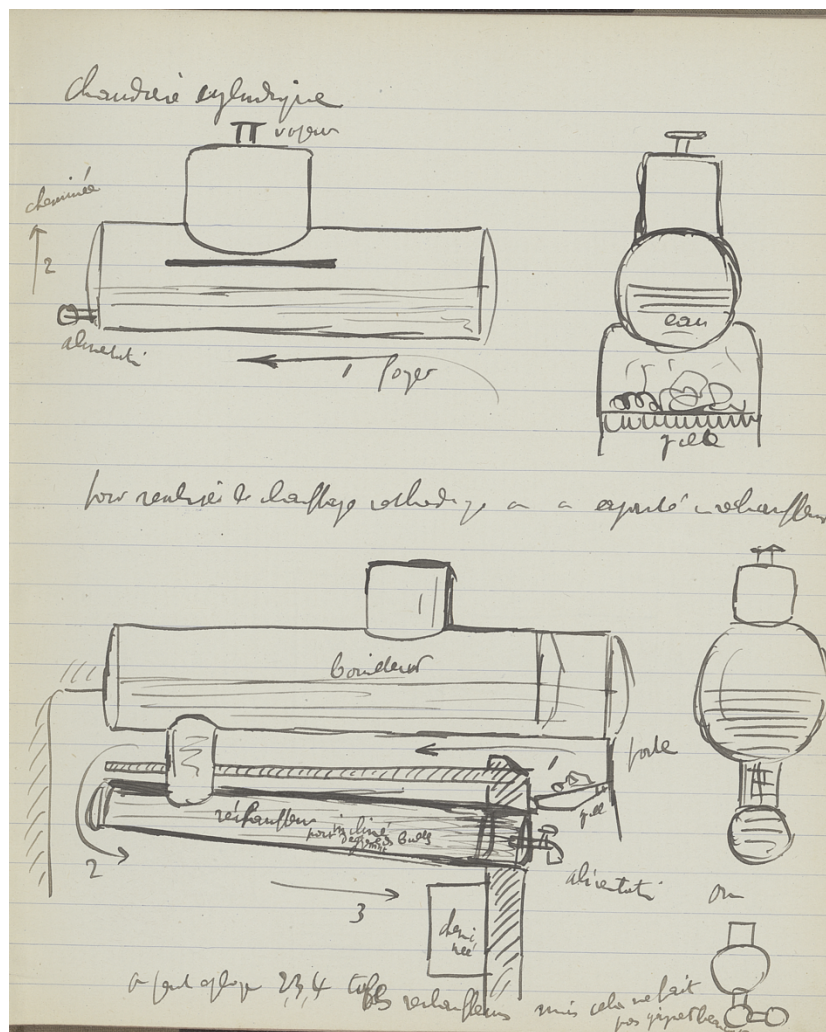 Chaudière cylindrique
vapeur
cheminée
2
eau
alimentati
1 foyer
grille
pour réaliser le chauffage méthodique on a ajouté un réchauffeur
bouilleur
1
porte
réchauffeur
incliné
grille
2
alimentati
ou
3
chemi
née
on peut 2, 3, 4 réchauffeurs mais cela ne fait
pas